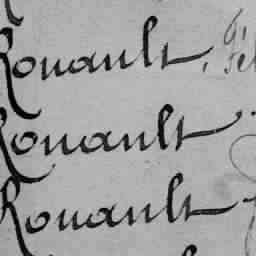 Rouault, Fél
Rouault
Rouault